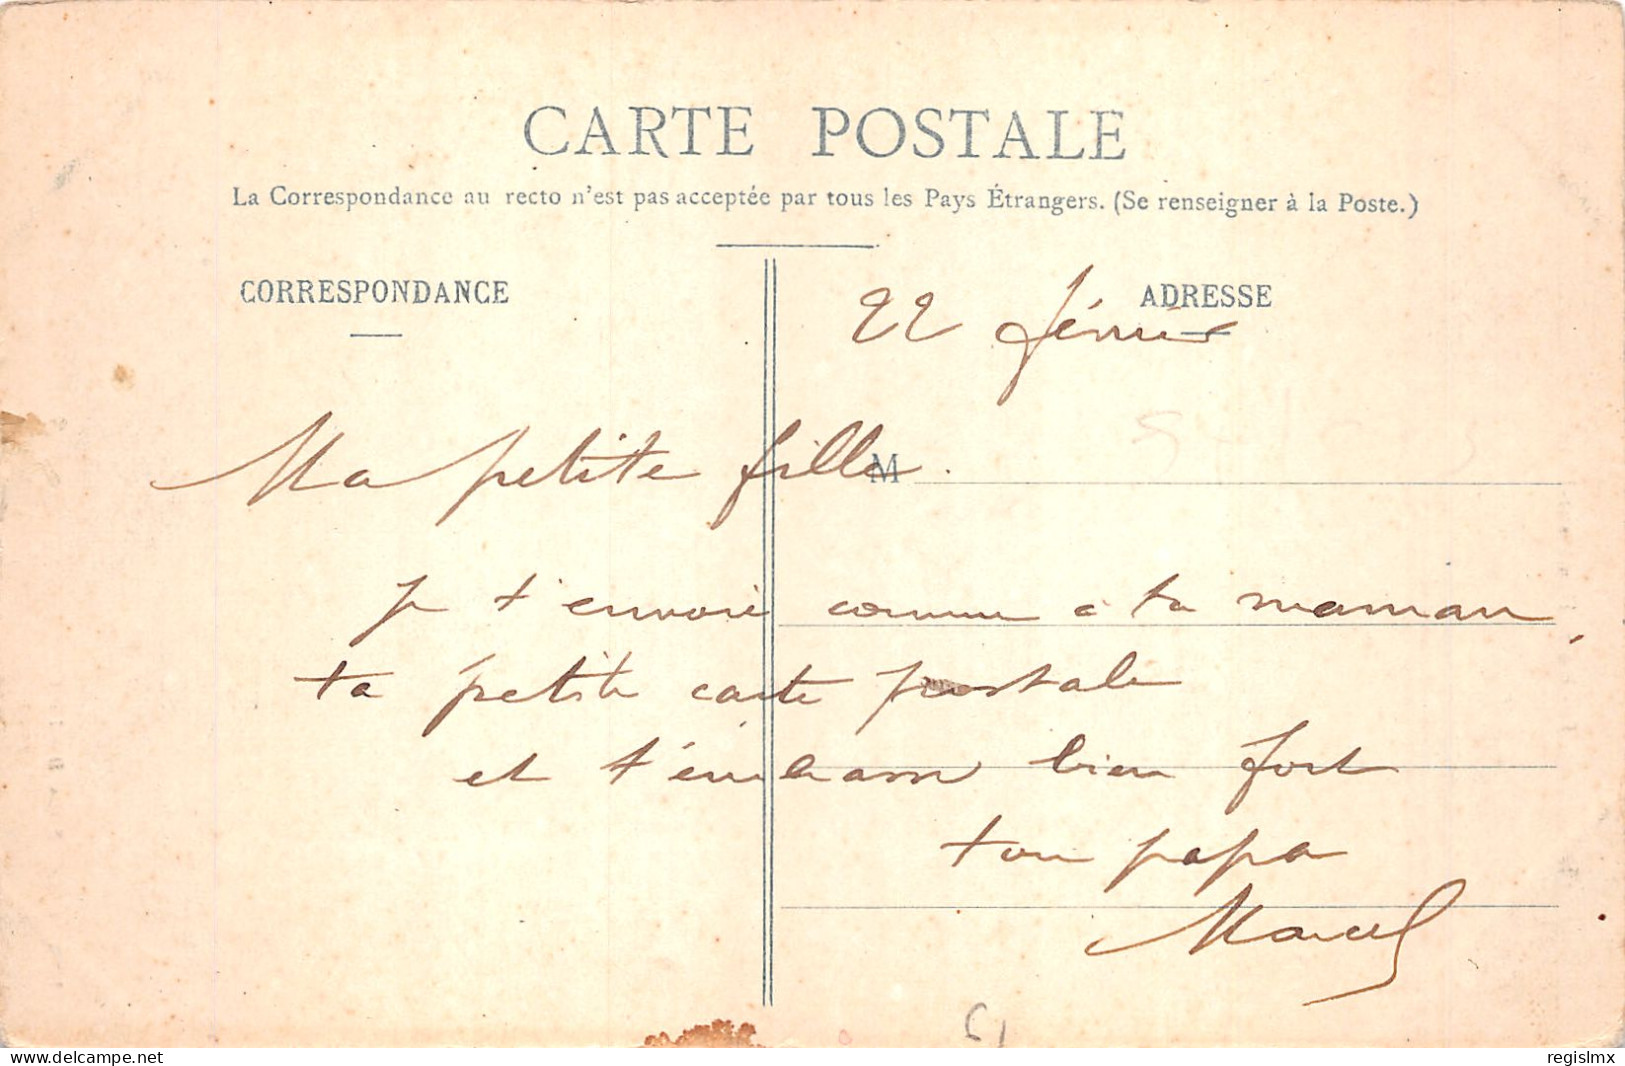 CARTE POSTALE
La Correspondance au recto n'est pas acceptée par tous les Pays Étrangers. (Se renseigner à la Poste.)
CORRESPONDANCE
ADRESSE
22 février
Ma petite fille.
M
je t'envoie comme à ta maman,
ta petite carte postale
et t'embrasse bien fort
ton papa
Marcel
51
www.delcampe.net
regislmx